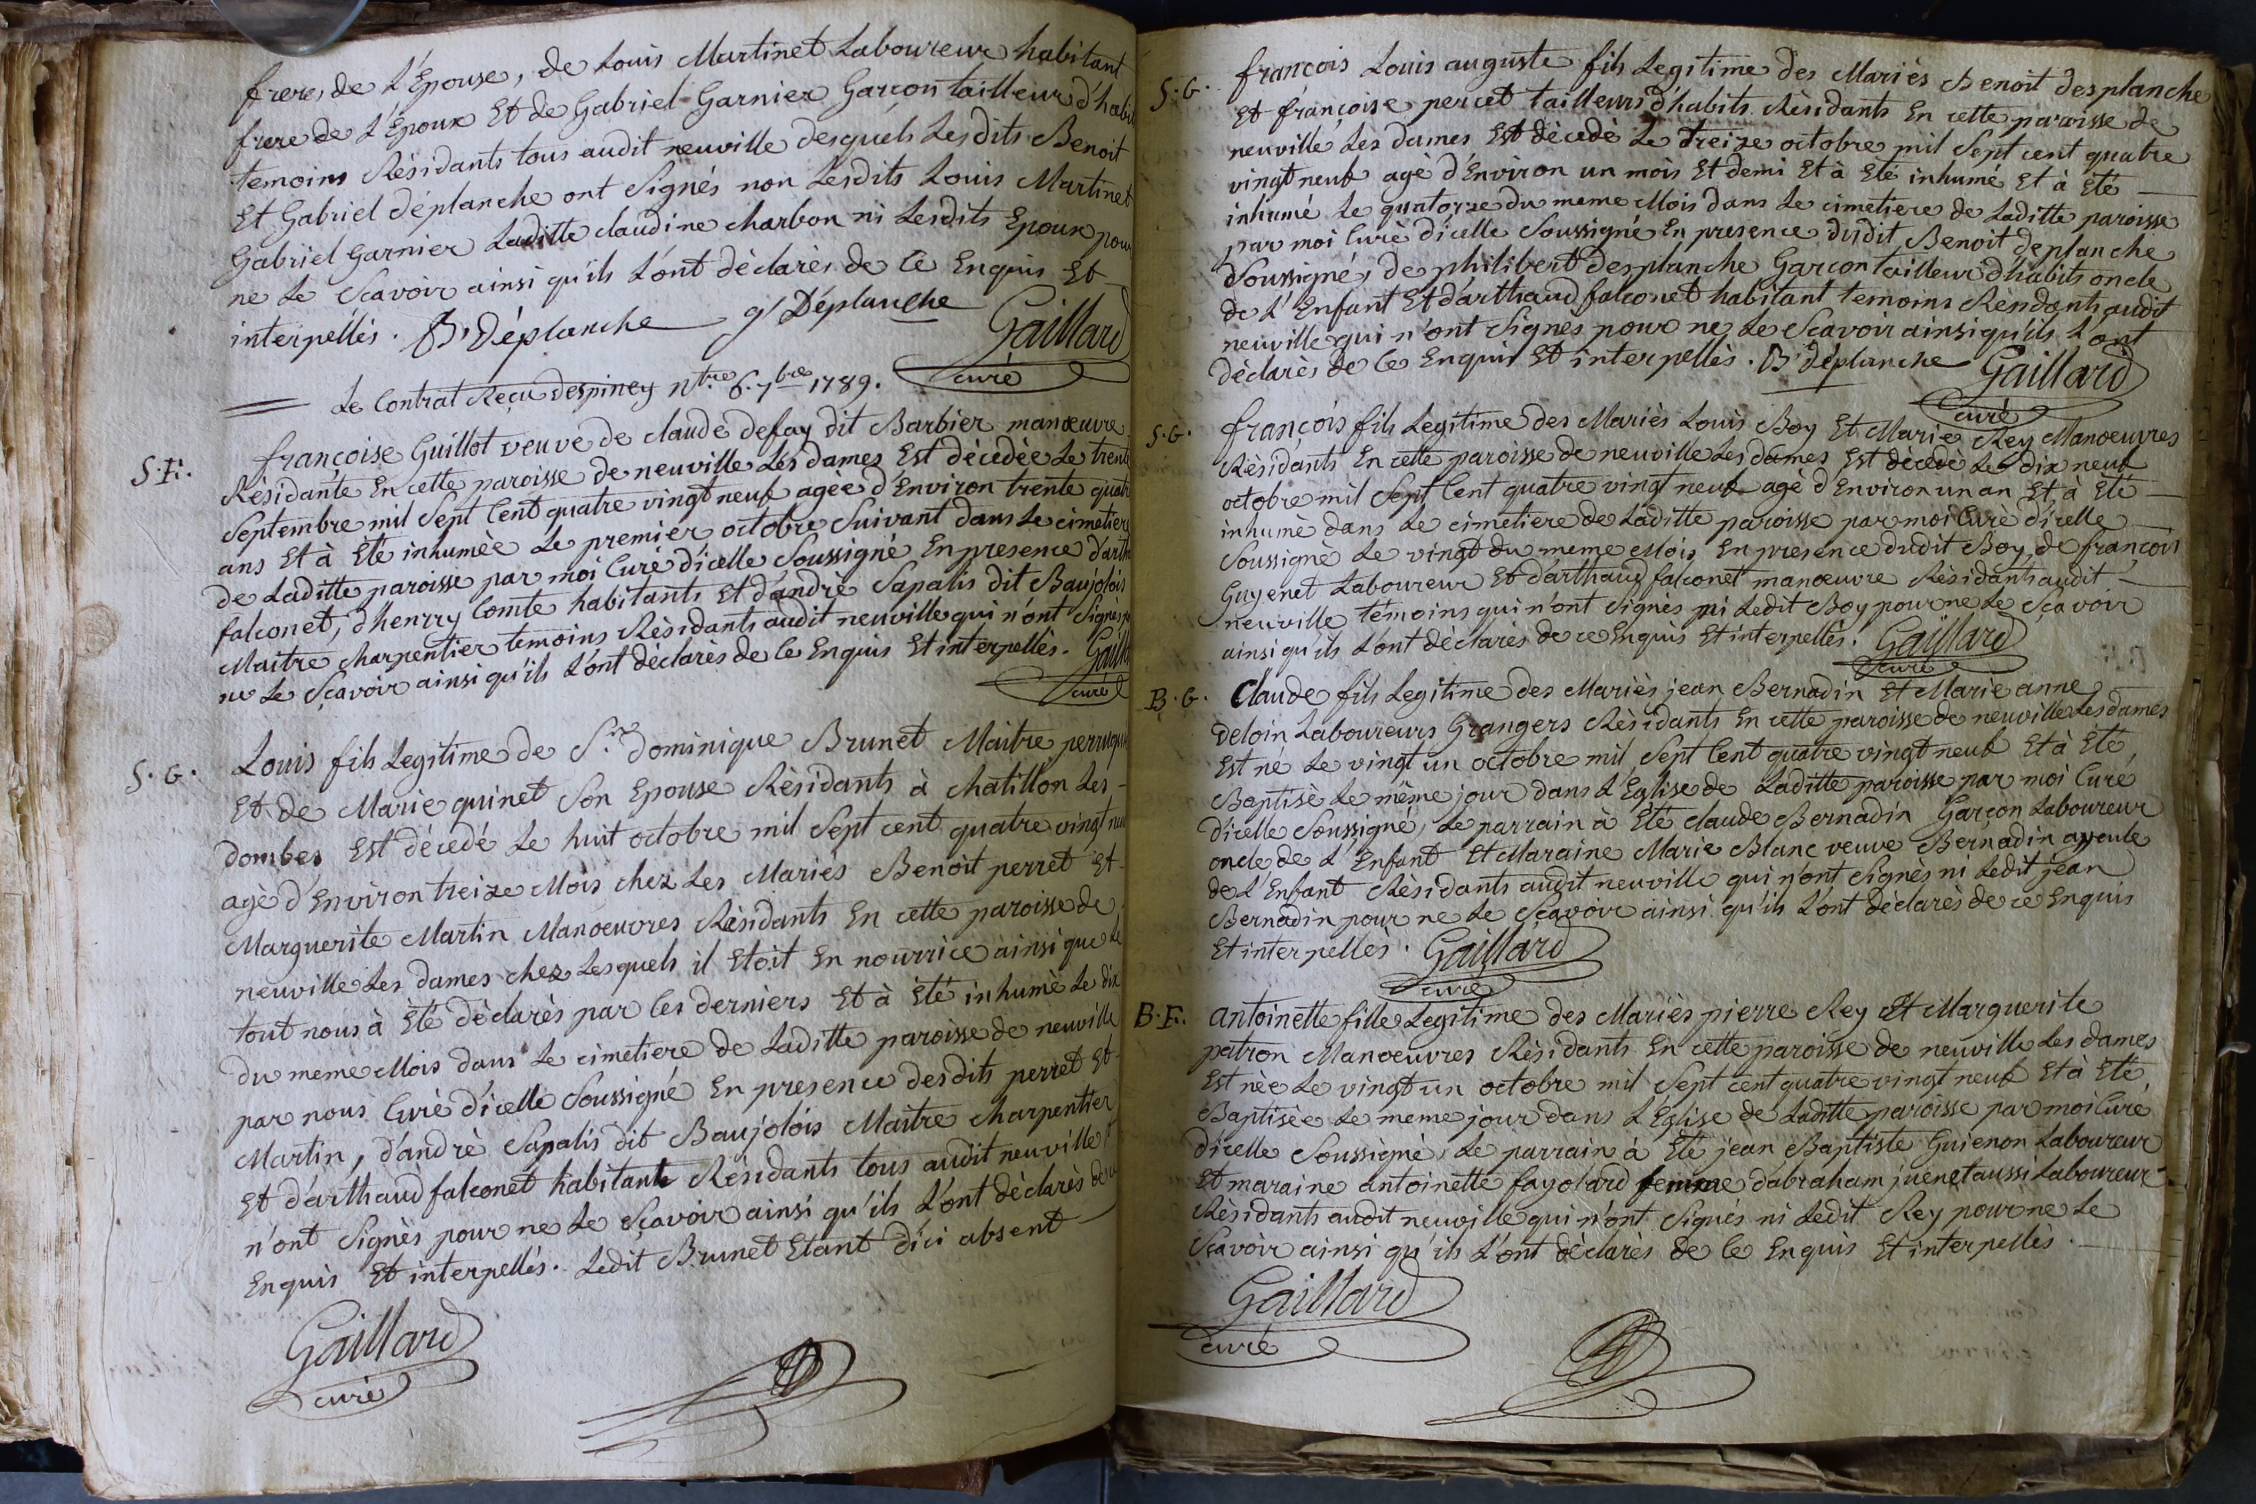 freres de L'Epouse, de Louis Martinet Laboureur habitant
frere de L'Epoux Et de Gabriel Garnier Garçon tailleur d'habit
temoins Résidants tous audit neuville desquels Lesdits Benoit
Et Gabriel déplanche ont Signés non Lesdits Louis Martinet
Gabriel Garnier Laditte claudine charbon ni Lesdits Epoux pour
ne Le Scavoir ainsi qu'ils L'ont déclarés de Ce Enquis Et
interpellés. B. Déplanche g. Déplanche Gaillard
curé
Le Contrat Reçu Despiney Ntre 6. 7bre 1789.
S.F. françoise Guillot veuve de claude defay dit Barbier manœuvre
Résidante En cette paroisse de neuville Les dames Est décédée Le trente
Septembre mil Sept Cent quatre vingt neuf agée d'Environ trente quatre
ans Et à Eté inhumée Le premier octobre Suivant dans Le cimetiere
de Laditte paroisse par moi Curé d'icelle Soussigné En presence d'arth
falconet, d'henrry Comte habitants Et d'andré Sapalis dit Baujolois
Maitre charpentier temoins Résidants audit neuville qui n'ont Signés p
ne Le Sçavoir ainsi qu'ils L'ont déclarés de Ce Enquis Et interpellés. Gaill
curé
S.G. Louis fils Legitime de Sr. dominique Brunet Maitre perruqu
Et de Marie quinet Son Epouse Résidants à chatillon Les
dombes Est décedé Le huit octobre mil Sept cent quatre vingt neu
agé d'Environ treize Mois chez Les Mariés Benoit perret Et
Marguerite Martin Manoeuvres Résidants En cette paroisse de
neuville Les dames chez Lesquels il Etoit En nourrice ainsi que Le
tout nous à Eté déclarés par Ces derniers Et à Eté inhumé Le dix
du meme Mois dans Le cimetiere de Laditte paroisse de neuville
par nous Curé d'icelle Soussigné En presence desdits perret Et
Martin, d'andré Sapalis dit Baujolois Maitre charpentier
Et d'arthaud falconet habitant Résidants tous audit neuville
n'ont Signés pour ne Le Sçavoir ainsi qu'ils L'ont déclarés de ce
Enquis Et interpellés. Ledit Brunet Etant d'ici absent
Gaillard
curé
S.G. françois Louis auguste fils Legitime des Mariés Benoit desplanche
Et françoise percet tailleurs d'habits Résidants En cette paroisse de
neuville Les dames Est décedé Le treize octobre mil Sept cent quatre
vingt neuf agé d'Environ un mois Et demi Et à Eté inhumé Et à Eté
inhumé Le quatorze du meme Mois dans Le cimetiere de Laditte paroisse
par moi Curé d'icelle Soussigné En presence dudit Benoit deplanche
Soussigné, de philibert desplanche Garcon tailleur d'habits oncle
de L'Enfant Et d'arthaud falconet habitant temoins Résidants audit
neuville qui n'ont Signés pour ne Le Scavoir ainsi qu'ils L'ont
déclarés de Ce Enquis Et interpellés. B. déplanche Gaillard
curé
S.G. françois fils Legitime des Mariés Louis Boy Et Marie Rey Manoeuvres
Résidants En cette paroisse de neuville Les dames Est décedé Le dix neuf
octobre mil Sept Cent quatre vingt neuf agé d'Environ un an Et à Eté
inhumé dans Le cimetiere de Laditte paroisse par moi Curé d'icelle
Soussigné Le vingt du meme Mois En presence dudit Boy, de françois
Guyenet Laboureur Et d'arthaud falconet manœuvre Résidants audit
neuville témoins qui n'ont Signés ni Ledit Boy pour ne Le Sçavoir
ainsi qu'ils L'ont déclarés de ce Enquis Et interpellés. Gaillard
curé
B.G. Claude fils Legitime des Mariés jean Bernadin Et Marie anne
deloin Laboureurs Grangers Résidants En cette paroisse de neuville Les dames
Est né Le vingt un octobre mil Sept Cent quatre vingt neuf Et à Eté
Baptisé Le même jour dans L'Eglise de Laditte paroisse par moi Curé
d'icelle Soussigné, Le parrain à Eté claude Bernadin Garçon Laboureur
oncle de L'Enfant Et Maraine Marie Blanc veuve Bernadin ayeule
de L'Enfant Résidants audit neuville qui n'ont Signés ni Ledit jean
Bernadin pour ne Le Scavoir ainsi qu'ils L'ont déclarés de ce Enquis
Et interpellés. Gaillard
curé
B.F. antoinette fille Légitime des Mariés pierre Rey Et Marguerite
patron Manoeuvres Résidants En cette paroisse de neuville Les dames
Est née Le vingt un octobre mil Sept cent quatre vingt neuf Et à Eté
Baptisée Le meme jour dans L'Eglise de Laditte paroisse par moi Curé
d'icelle Soussigné, Le parrain à Eté jean Baptiste Guienon Laboureur
Et maraine antoinette fayolard femme d'abraham juenet aussi Laboureur
Résidants audit neuville qui n'ont Signés ni Ledit Rey pour ne Le
Scavoir ainsi qu'ils L'ont déclarés de Ce Enquis Et interpellés.
Gaillard
curé